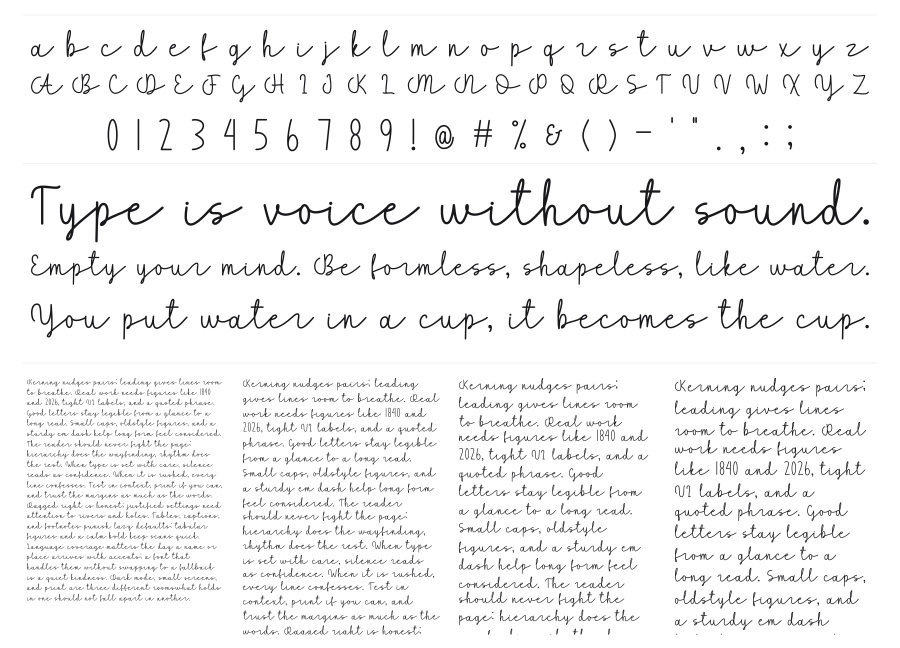 a b c d e f g h i j k l m n o p q r s t u v w x y z
A B C D E F G H I J K L M N O P Q R S T U V W X Y Z
0 1 2 3 4 5 6 7 8 9 ! @ # % & ( ) - ' " . , : ;
Type is voice without sound.
Empty your mind. Be formless, shapeless, like water.
You put water in a cup, it becomes the cup.
Kerning nudges pairs; leading gives lines room
to breathe. Real work needs figures like 1840
and 2026, tight UI labels, and a quoted phrase.
Good letters stay legible from a glance to a
long read. Small caps, oldstyle figures, and a
sturdy em dash help long form feel considered.
The reader should never fight the page;
hierarchy does the wayfinding, rhythm does
the rest. When type is set with care, silence
reads as confidence. When it is rushed, every
line confesses. Test in context, print if you can,
and trust the margins as much as the words.
Ragged right is honest; justified settings need
attention to rivers and holes. Tables, captions,
and footnotes punish lazy defaults; tabular
figures and a calm bold keep scans quick.
Language coverage matters the day a name or
place arrives with accents; a font that
handles them without swapping to a fallback
is a quiet kindness. Dark mode, small screens,
and print are three different rooms; what holds
in one should not fall apart in another.
Kerning nudges pairs; leading
gives lines room to breathe. Real
work needs figures like 1840 and
2026, tight UI labels, and a quoted
phrase. Good letters stay legible
from a glance to a long read.
Small caps, oldstyle figures, and
a sturdy em dash help long form
feel considered. The reader
should never fight the page;
hierarchy does the wayfinding,
rhythm does the rest. When type
is set with care, silence reads
as confidence. When it is rushed,
every line confesses. Test in
context, print if you can, and
trust the margins as much as the
words. Ragged right is honest;
Kerning nudges pairs;
leading gives lines room
to breathe. Real work
needs figures like 1840 and
2026, tight UI labels, and a
quoted phrase. Good
letters stay legible from
a glance to a long read.
Small caps, oldstyle
figures, and a sturdy em
dash help long form feel
considered. The reader
should never fight the
page; hierarchy does the
Kerning nudges pairs;
leading gives lines
room to breathe. Real
work needs figures
like 1840 and 2026, tight
UI labels, and a
quoted phrase. Good
letters stay legible
from a glance to a
long read. Small caps,
oldstyle figures, and
a sturdy em dash